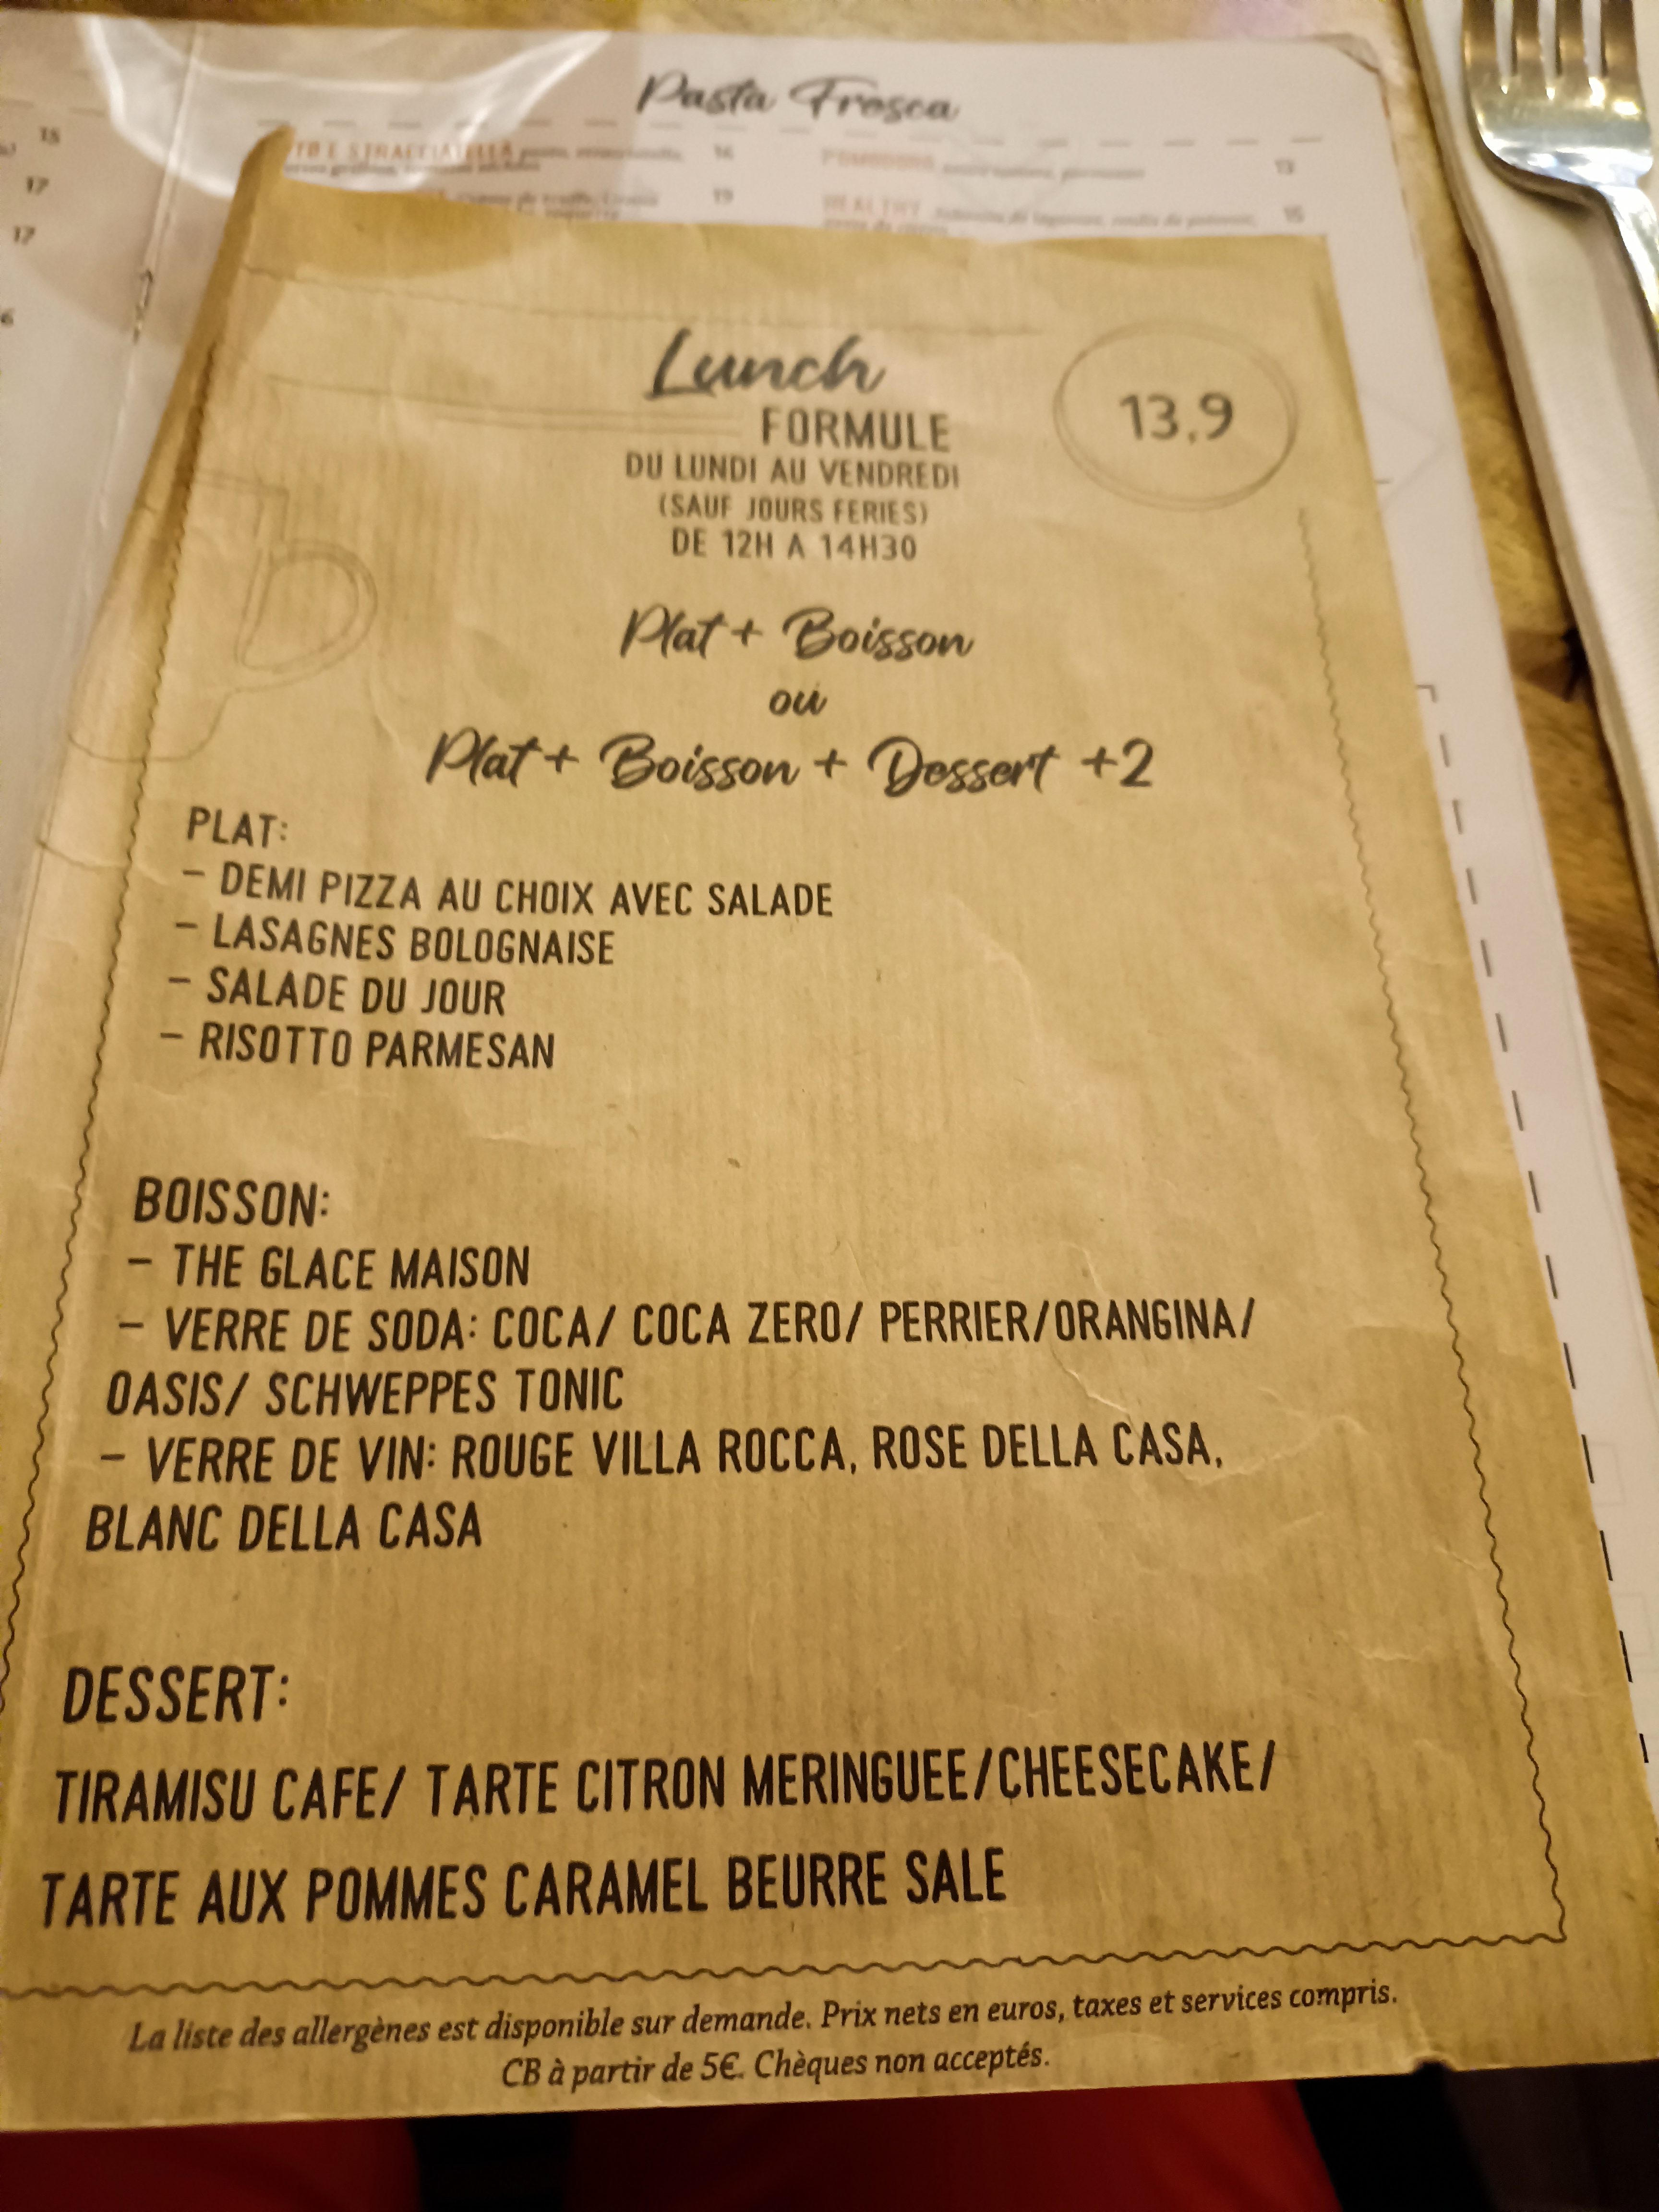 Pasta Fresca
15
17
17
6
E STRACCIATELLA
16
POMODORO
13
19
HEALTHY
15
Lunch
13,9
FORMULE
DU LUNDI AU VENDREDI
(SAUF JOURS FERIES)
DE 12H A 14H30
Plat + Boisson
ou
Plat + Boisson + Dessert +2
PLAT:
- DEMI PIZZA AU CHOIX AVEC SALADE
- LASAGNES BOLOGNAISE
- SALADE DU JOUR
- RISOTTO PARMESAN
BOISSON:
- THE GLACE MAISON
- VERRE DE SODA: COCA/ COCA ZERO/ PERRIER/ORANGINA/
OASIS/ SCHWEPPES TONIC
- VERRE DE VIN: ROUGE VILLA ROCCA, ROSE DELLA CASA,
BLANC DELLA CASA
DESSERT:
TIRAMISU CAFE/ TARTE CITRON MERINGUEE/CHEESECAKE/
TARTE AUX POMMES CARAMEL BEURRE SALE
La liste des allergènes est disponible sur demande. Prix nets en euros, taxes et services compris.
CB à partir de 5€. Chèques non acceptés.